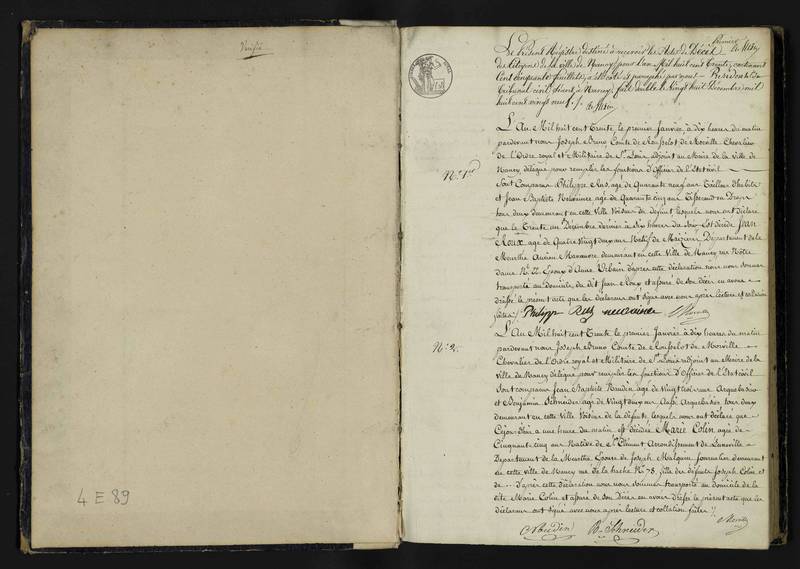 Vérifié
4 E 89
Premier
Le Présent Registre destiné à recevoir les Actes de Décès
des Citoyens de la ville de Nancy, pour l'an Mil huit cent Trente, contenant
Cent Cinquante feuillets, a été coté et paraphé par nous Président du
Tribunal civil, séant à Nancy, fait double le vingt huit Décembre mil
huit cent vingt neuf ./.
N.o 1er
L'An Mil huit cent Trente, le premier Janvier, à dix heures du matin
pardevant nous Joseph Bruno Comte de Rousselot de Morville Chevalier
de l'Ordre royal et Militaire de St. Louis, adjoint au Maire de la Ville de
Nancy, délégué pour remplir les fonctions d'Officier de l'État civil
Sont Comparus Philippe Rus, âgé de Quarante neuf ans Tailleur d'habits
et Jean Baptiste âgé de Quarante cinq ans Tisserand en Draps
tous deux demeurant en cette Ville Voisins du défunt lesquels nous ont déclaré
que le Trente un Décembre dernier à Six heures du Soir Est décédé Jean
Roux, agé de Quatre Vingt deux ans Natif de Maizières Département de la
Meurthe Ancien Manœuvre demeurant en cette Ville de Nancy rue Notre
dame No. 22, Epoux d'Anne Urbain d'après cette déclaration nous nous sommes
transporté au domicile du dit Jean Roux et assuré de son Décès en avons
dréssé le présent acte que les déclarans ont signé avec nous après lecture et collation
faites ./. Philipp Rus
N.o 2.
L'An Mil huit cent Trente le premier Janvier à dix heures du matin
pardevant nous Joseph Bruno Comte de Rousselot de Morville
Chevalier de l'Ordre royal et Militaire de St. Louis adjoint au Maire de la
Ville de Nancy délégué pour remplir les fonctions d'Officier de l'État civil
Sont comparus Jean Baptiste Noudin âgé de Vingt trois ans Arquebusier
et Benjamin Schneider âgé de Vingt deux ans aussi Arquebusier tous deux
demeurant en cette Ville Voisins de la défunte lesquels nous ont déclaré que
Cejourd'hui à une heure du matin est décédée Marie Colin agée de
Cinquante cinq ans Native de St. Clément Arrondissement de Lunéville
Département de la Meurthe, Epouse de Joseph Malgaine journalier demeurant
en cette ville de Nancy rue de la hache No. 78, fille des défunts Joseph Colin et
de ... D'après cette Déclaration nous nous sommes transporté au domicile de la
dite Marie Colin et assuré de son Décès en avons dréssé le présent acte que les
déclarans ont signé avec nous après lecture et collation faites ./.
Noudin B. Schneider